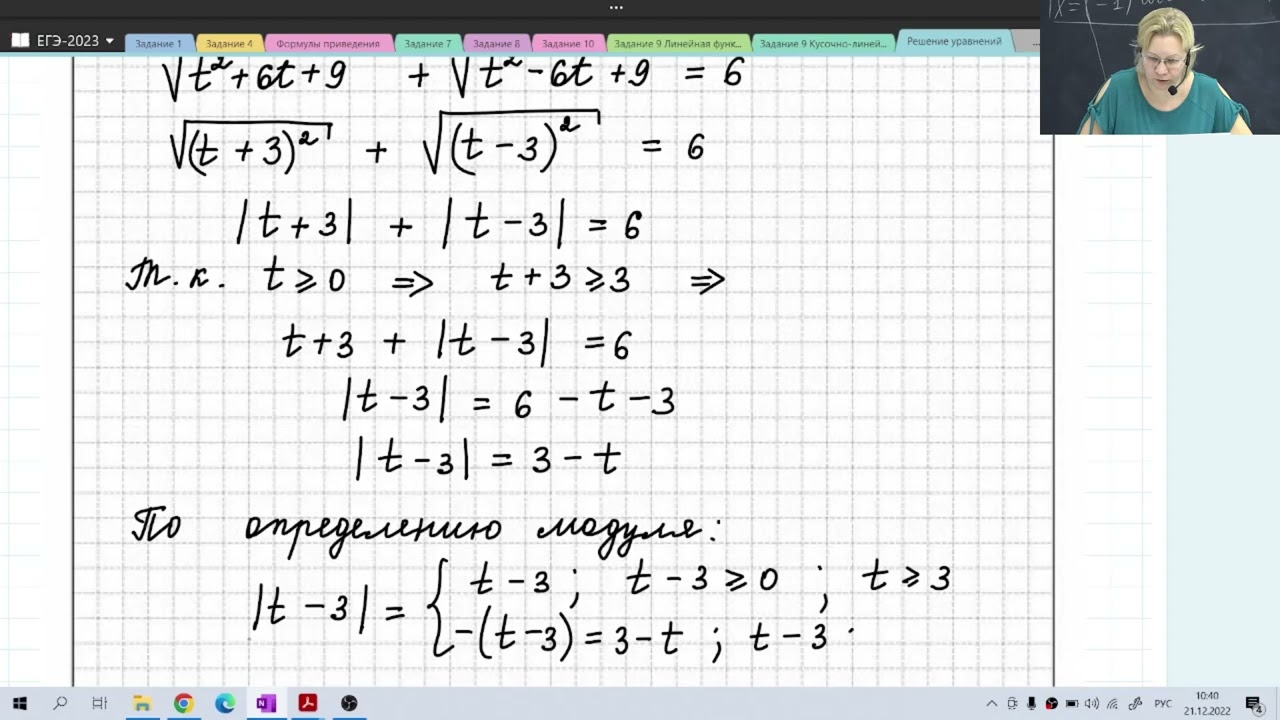 ...
ЕГЭ-2023
Задание 1
Задание 4
Формулы приведения
Задание 7
Задание 8
Задание 10
Задание 9 Линейная функ...
Задание 9 Кусочно-линей...
Решение уравнений
...
√t²+6t+9 + √t²-6t+9 = 6
√(t+3)² + √(t-3)² = 6
|t+3| + |t-3| = 6
Т.к. t ⩾ 0 ⇒ t+3 ⩾ 3 ⇒
t+3 + |t-3| = 6
|t-3| = 6 - t - 3
|t-3| = 3 - t
По определению модуля:
|t-3| = { t-3 ; t-3 ⩾ 0 ; t ⩾ 3
-(t-3) = 3-t ; t-3
РУС
10:40
21.12.2022
4